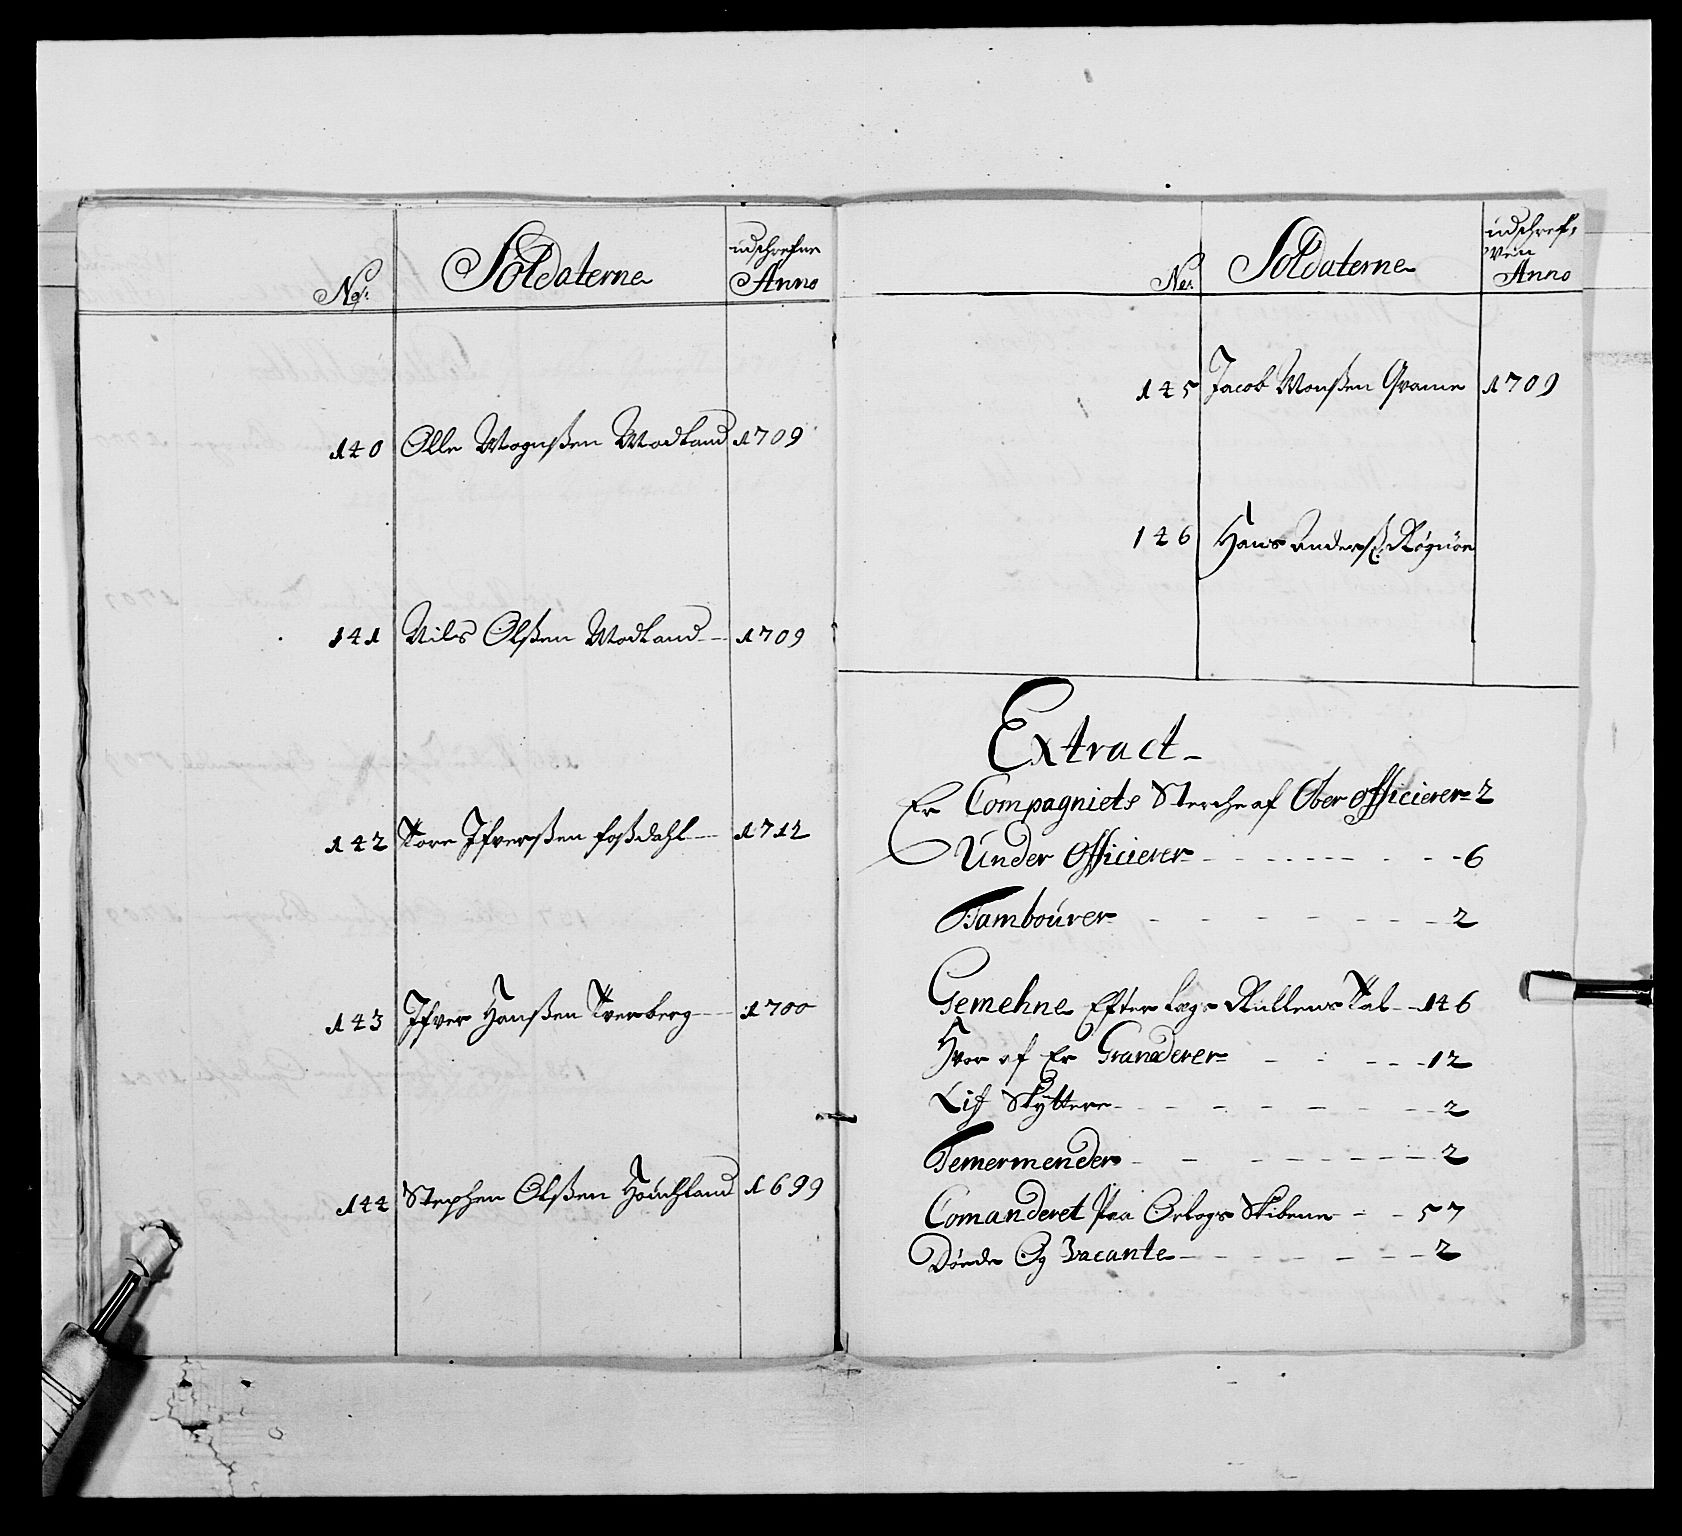 No:
Soldaterne
udschrefne
Anno
140 Olle Mognßen Modland 1709
141 Nils Olßen Modland 1709
142 Tore Ifverßen foßdahl 1712
143 Ifver Hanßen Tverberg 1700
144 Stephen Olßen Houchland 1699
No:
Soldaterne
udschref,
ven
Anno
145 Jacob Monßen Qvame 1709
146 Hans Anderß:
Extract
Er Compagniets Sterche af Ober officierer 2
Under Officierer 6
Tambourer 2
Gemehne Efter Legs Rullens Tal 146
Hvor af Er Granaderer 12
Lif Skÿttere 2
Temermender 2
Comanderet Paa Orlogs Skibene 57
Döede Og Vacante 2